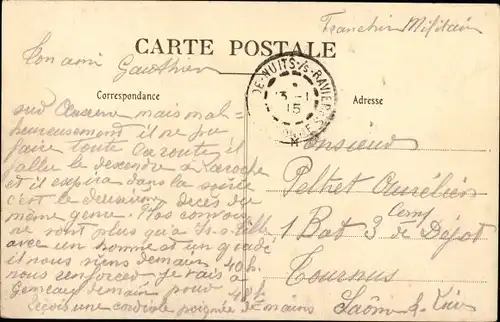 Franchise Militaire
CARTE POSTALE
Ton ami Gauthier
DE NUITS-S/S-RAVIERES
3-1
15
Correspondance
Adresse
sud Auxerre mais mal-
heureusement il ne put
faire toute la route, il
fallu le descendre a Laroche
et il expira dans la soirée
c'est le deuxième décès du
même genre. Nos convois
ne sont plus qu'a
avec un homme et un gradé
il nous viens demain 40 h.
nous renforcer je vais a
demain pour 48 h.
Reçois une cordiale poignée de mains
Monsieur
Peltret Aurélien
1 Bat 3 Cie de Dépôt
Tournus
Saône & Loire